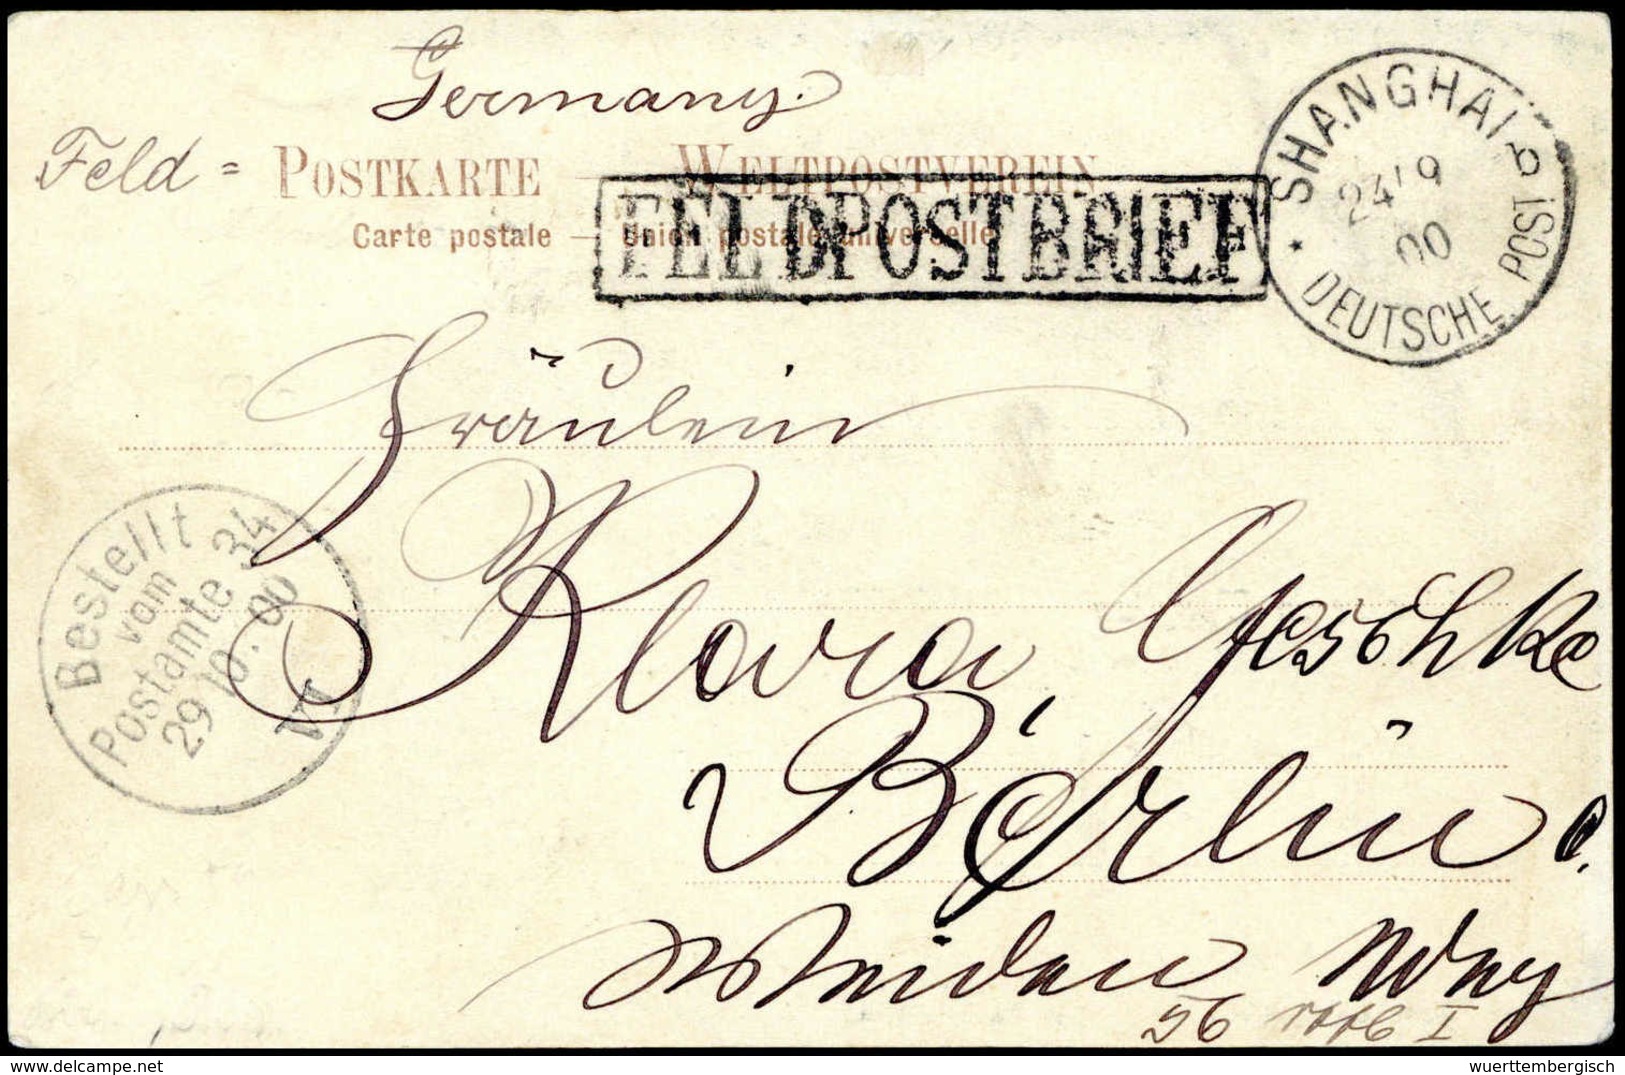 Germany.
Feld = POSTKARTE — WELTPOSTVEREIN
Carte postale — Union postale universelle
FELDPOSTBRIEF
SHANGHAI
24/9
00
* DEUTSCHE POST b
Fräulein
Klara Geschke
Berlin
Bestellt
vom
Postamte 34
29/10.00
VI
Weiden Weg
56 I
delcampe.net
wuerttembergisch